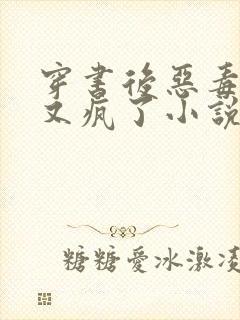 穿書後惡毒
又瘋了小說
糖糖愛冰激凌